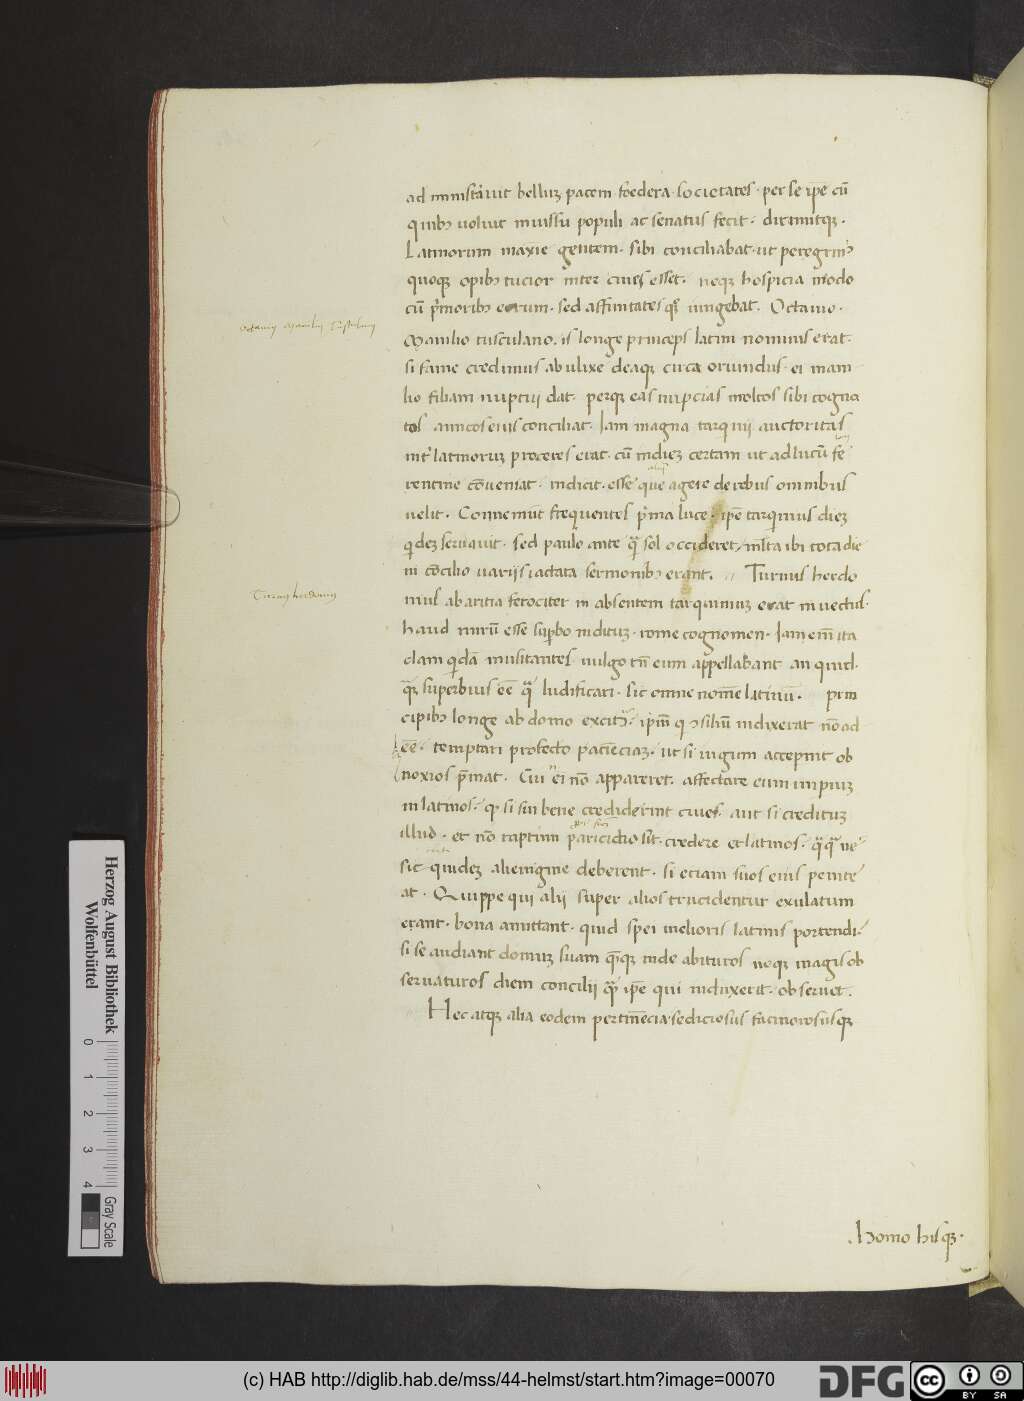 ad ministrauit belluꝫ pacem foedera societates per se ip̄e cū
quibꝰ uoluit iniussu populi ac senatus fecit. diremitqꝫ.
Latinorum maxie gentem. sibi conciliabat. ut peregrinis
quoqꝫ opibꝰ tucior inter ciues esset. neqꝫ hospicia modo
cū p̄moribꝰ eorum. sed affinitates qꝫ iungebat. Octauio.
Octauiꝰ Mamiliꝰ Tusculanꝰ
Mamilio tusculano. is longe princeps latini nominis erat.
si fame credimus ab ulixe deaqꝫ circa oriundus. ei mam
lio filiam nuptii dat. perqꝫ eas nupcias moltos sibi cogna
tos amicos eius conciliat. Iam magna tarquinii auctoritas
int̄ latinoruꝫ proceres erat. cū in dieꝫ certam ut ad lucū fe
rentine cōueniat. indicit. esse que agere de rebus omnibus
uelit. Conueniut frequentes p̄ma luce. ip̄e tarquinius dieꝫ
quideꝫ seruauit. sed paulo ante q̄ sol occideret, mlta ibi tota die
in cōcilio uariis iactata sermonibꝰ erant. Turnus herdo
Turnus herdonius
nius ab aritia ferociter in absentem tarquiniuꝫ erat inuectus.
haud mirū esse supbo indituꝫ. rome cognomen. Iam em̄ ita
clam quidā musitantes. uulgo tn̄ eum appellabant an quid.
quaꝫ superbius eē q̄ ludificari. sic omne nomē latinū. prin
cipibꝰ longe ab domo excitis. ipm̄ q cōsiliū indixerat nō ad
eē. temptari profecto paciēciaꝫ. ut si iugum acceperint ob
noxios p̄mat. Cui ei nō appareret. affectare eum impiuꝫ
in latinos. qꝫ si sui bene crediderint ciues. aut si credituꝫ
illud. et nō raptum paricidio sit. credere et latinos. q̄q̄ ne
sic quideꝫ alienigine deberent. si eciam suos eius penite
at. Quippe qui alii super alios trucidentur exulatum
erant. bona amittant. quid spei melioris latinis portendi
si se audiant domuꝫ suam quēqꝫ inde abituros neqꝫ magis ob
seruaturos diem concilii q̄ ip̄e qui induxerit. obseruet.
Hec atqꝫ alia eodem pertinēcia. sediciosus facinorosusqꝫ
.homo hisqꝫ.
Herzog August Bibliothek
Wolfenbüttel
0 1 2 3 4
Gray Scale
(c) HAB http://diglib.hab.de/mss/44-helmst/start.htm?image=00070
DFG
cc BY SA